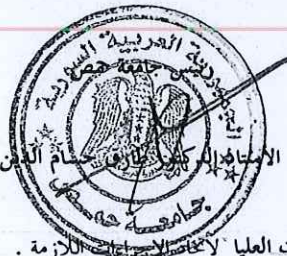 الجمهورية العربية السورية
رئيس جامعة حمص
الاستاذ الدكتور طارق حسام الدين
جامعة حمص
العليا لاتخاذ الاجراءات اللازمة .